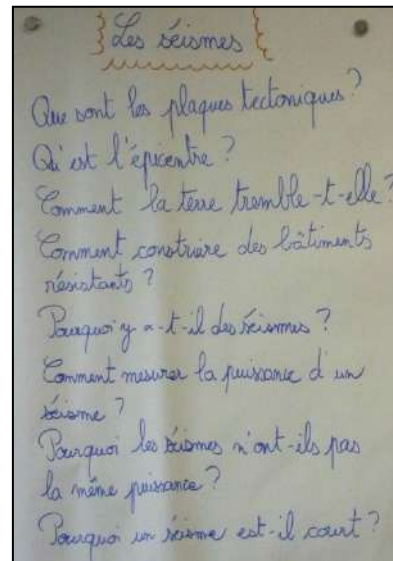 Les séismes
Que sont les plaques tectoniques?
Qu'est l'épicentre?
Comment la terre tremble-t-elle?
Comment construire des bâtiments
résistants?
Pourquoi y a-t-il des séismes?
Comment mesurer la puissance d'un
séisme?
Pourquoi les séismes n'ont-ils pas
la même puissance?
Pourquoi un séisme est-il court?